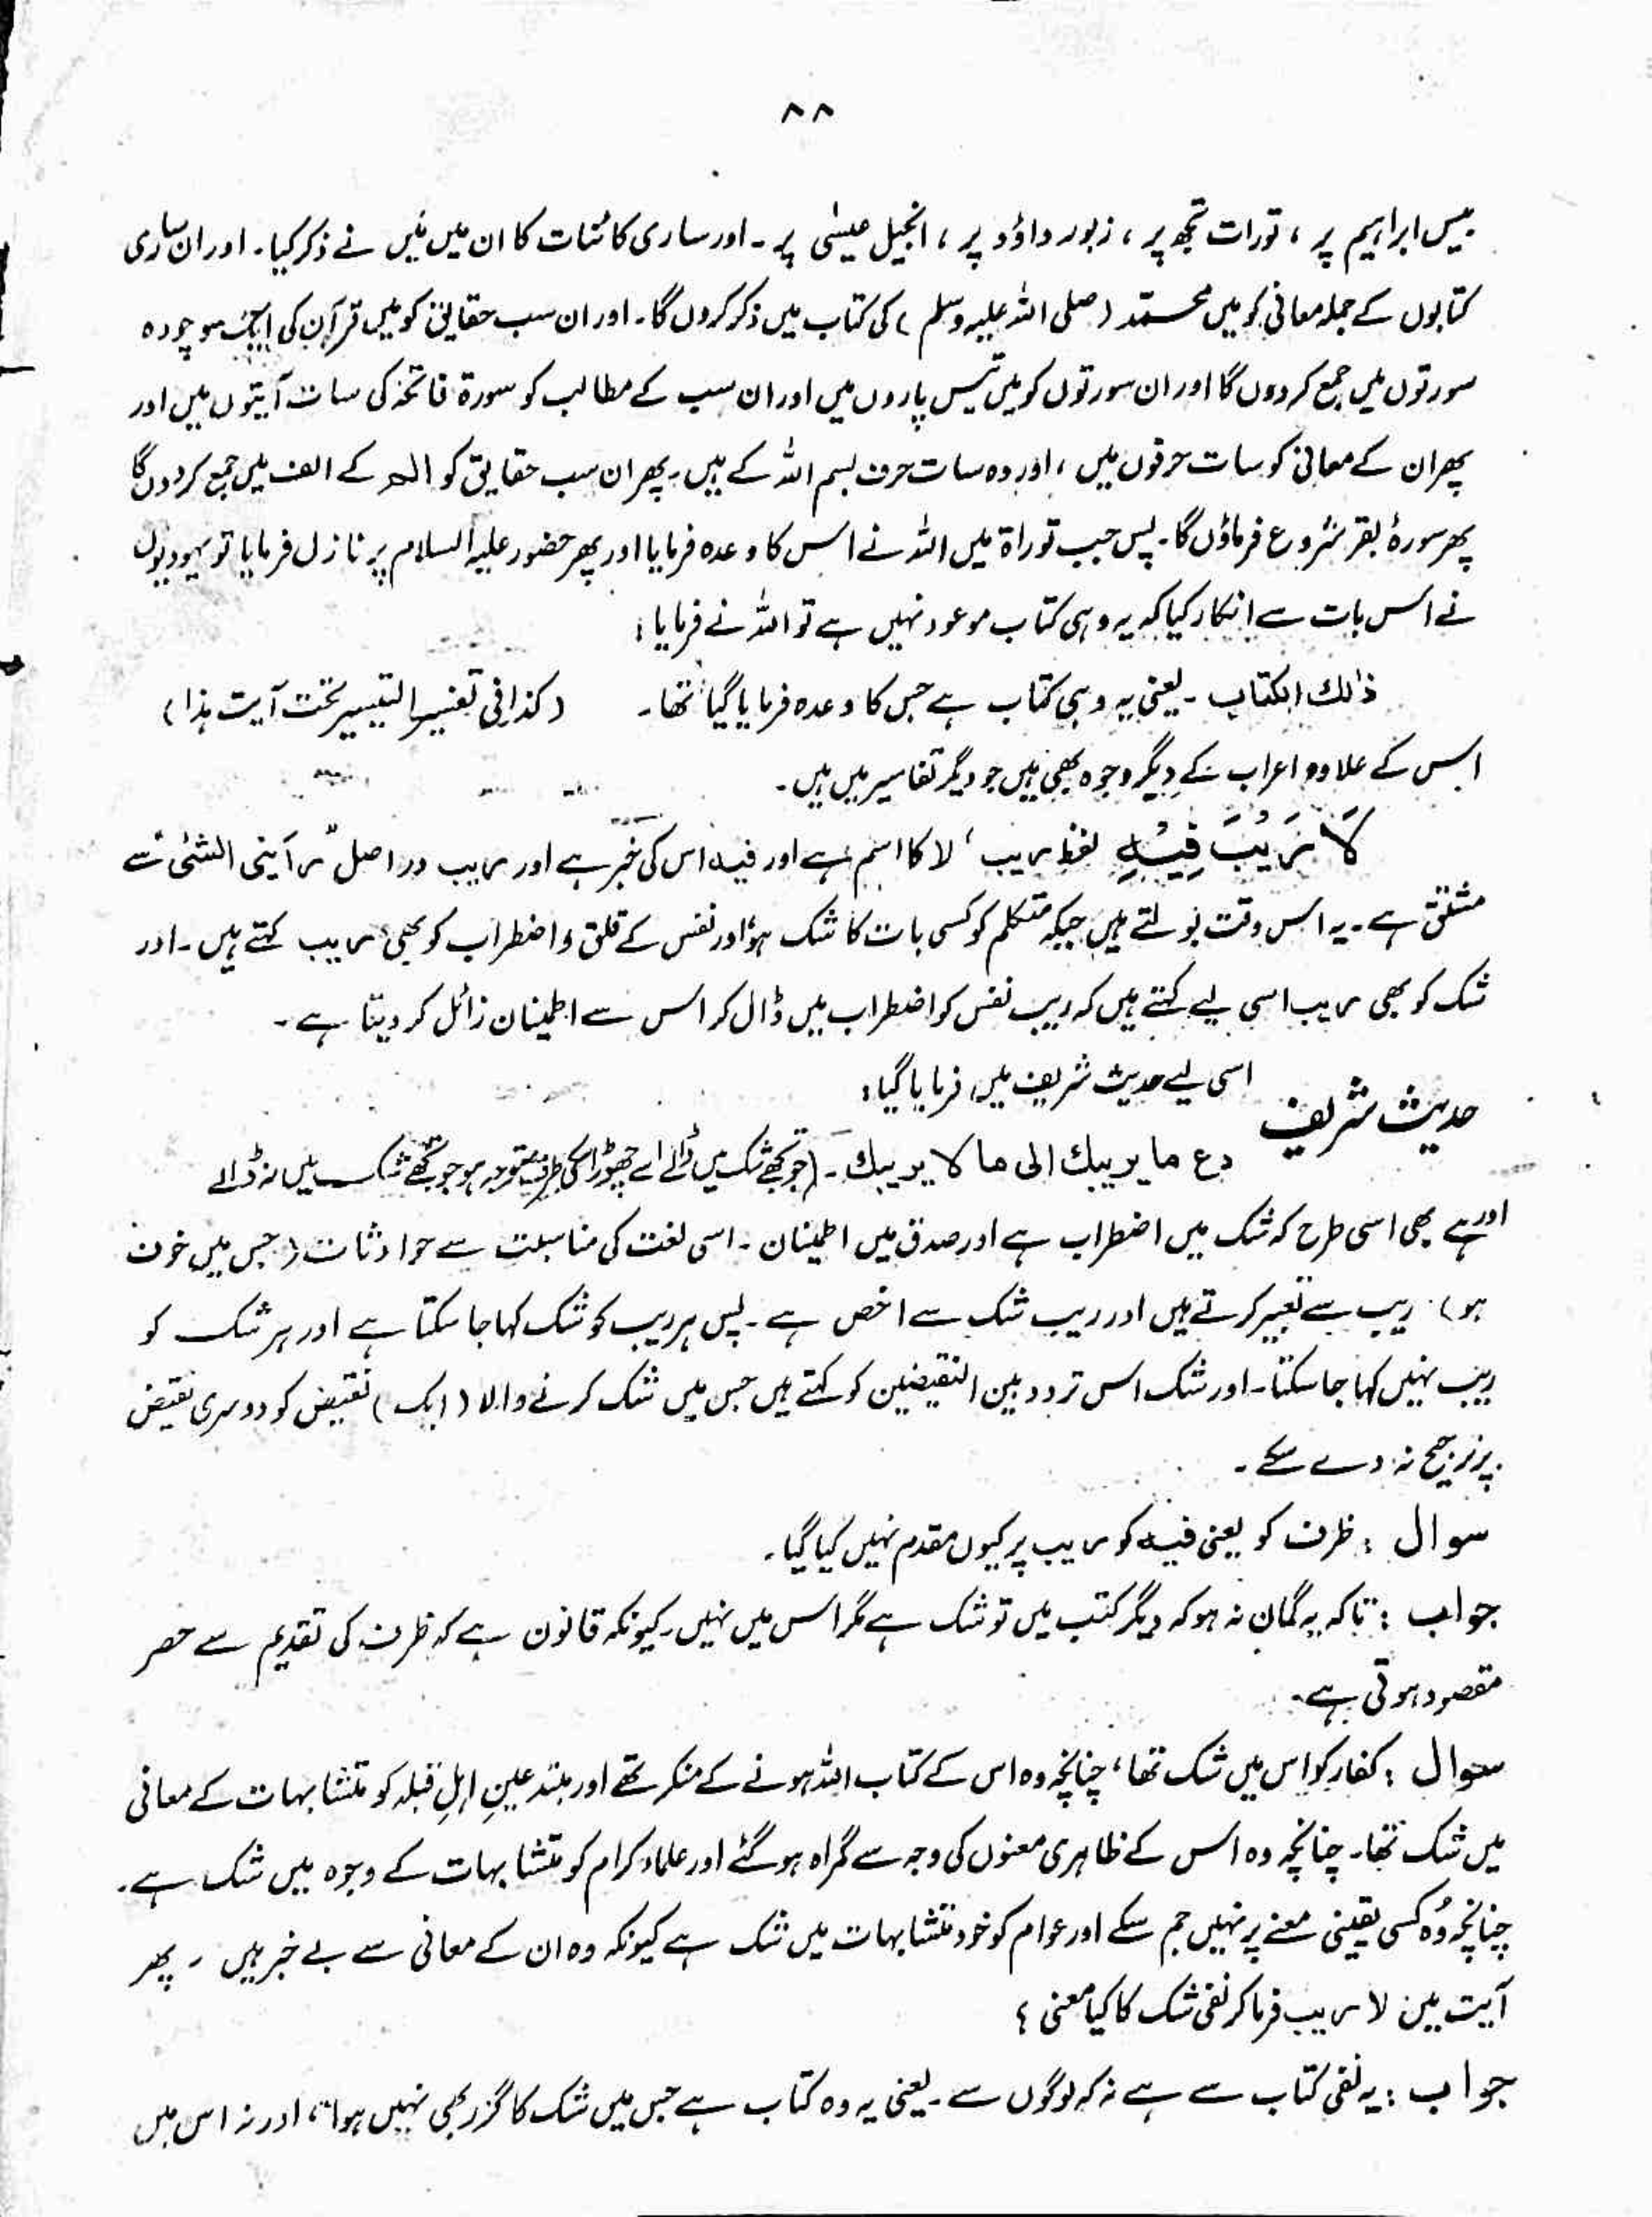 ۸۸
بیس ابراہیم پر ، تورات تجھ پر ، زبور داؤد پر ، انجیل عیسٰی پر ۔ اور ساری کائنات کا ان میں مَیں نے ذکر کیا ۔ اور ان ساری
کتابوں کے جملہ معانی کو میں محمّد (صلی اللہ علیہ وسلم) کی کتاب میں ذکر کروں گا ۔ اور ان سب حقایق کو میں قرآن کی ایک سو چودہ
سورتوں میں جمع کر دوں گا اور ان سورتوں کو میں تیس پاروں میں اور ان سب کے مطالب کو سورۃ فاتحہ کی سات آیتوں میں اور
پھر ان کے معانی کو سات حرفوں میں ، اور وہ سات حرف بسم اللہ کے ہیں ۔ پھر ان سب حقایق کو الم کے الف میں جمع کر دوں گا
پھر سورۂ بقر شروع فرماؤں گا ۔ پس جب توراۃ میں اللہ نے اس کا وعدہ فرمایا اور پھر حضور علیہ السلام پر نازل فرمایا تو یہودیوں
نے اس بات سے انکار کیا کہ یہ وہی کتاب موعود نہیں ہے تو اللہ نے فرمایا :
ذٰلك الكتاب ۔ یعنی یہ وہی کتاب ہے جس کا وعدہ فرمایا گیا تھا ۔ (کذا فی تفسیر التیسیر تحت آیت ہذا)
اس کے علاوہ اعراب کے دیگر وجوہ بھی ہیں جو دیگر تفاسیر میں ہیں ۔
لَا رَيْبَ فِيْهِ لفظ ریب ، لا کا اسم ہے اور فیہ اس کی خبر ہے اور ریب در اصل "رابنی الشئ" سے
مشتق ہے ۔ یہ اس وقت بولتے ہیں جبکہ متکلم کو کسی بات کا شک ہو اور نفس کے قلق و اضطراب کو بھی ریب کہتے ہیں ۔ اور
شک کو بھی ریب اسی لیے کہتے ہیں کہ ریب نفس کو اضطراب میں ڈال کر اس سے اطمینان زائل کر دیتا ہے ۔
حدیث شریف اسی لیے حدیث شریف میں فرمایا گیا :
دع ما يريبك الى ما لا يريبك ۔ (جو تجھے شک میں ڈالے اسے چھوڑ اس کی طرف متوجہ ہو جو تجھے شک میں نہ ڈالے
اور ہے بھی اسی طرح کہ شک میں اضطراب ہے اور صدق میں اطمینان ۔ اسی لغت کی مناسبت سے حوادثات (جس میں خوف
ہو) ریب سے تعبیر کرتے ہیں اور ریب شک سے اخص ہے ۔ پس ہر ریب کو شک کہا جا سکتا ہے اور ہر شک کو
ریب نہیں کہا جا سکتا ۔ اور شک اس تردد بین النقیضین کو کہتے ہیں جس میں شک کرنے والا (ایک) نقیض کو دوسری نقیض
پر ترجیح نہ دے سکے ۔
سوال : ظرف کو یعنی فیہ کو ریب پر کیوں مقدم نہیں کیا گیا ۔
جواب : تاکہ یہ گمان نہ ہو کہ دیگر کتب میں تو شک ہے مگر اس میں نہیں ۔ کیونکہ قانون ہے کہ ظرف کی تقدیم سے حصر
مقصود ہوتی ہے ۔
سوال : کفار کو اس میں شک تھا ، چنانچہ وہ اس کے کتاب اللہ ہونے کے منکر تھے اور مبتدعینِ اہلِ قبلہ کو متشابہات کے معانی
میں شک تھا ۔ چنانچہ وہ اس کے ظاہری معنوں کی وجہ سے گمراہ ہو گئے اور علماء کرام کو متشابہات کے وجوہ میں شک ہے ۔
چنانچہ وُہ کسی یقینی معنے پر نہیں جم سکے اور عوام کو خود متشابہات میں شک ہے کیونکہ وہ ان کے معانی سے بے خبر ہیں ۔ پھر
آیت میں لا ریب فرما کر نفی شک کا کیا معنی ؟
جواب : یہ نفی کتاب سے ہے نہ کہ لوگوں سے ۔ یعنی یہ وہ کتاب ہے جس میں شک کا گزر بھی نہیں ہوا ، اور نہ اس میں